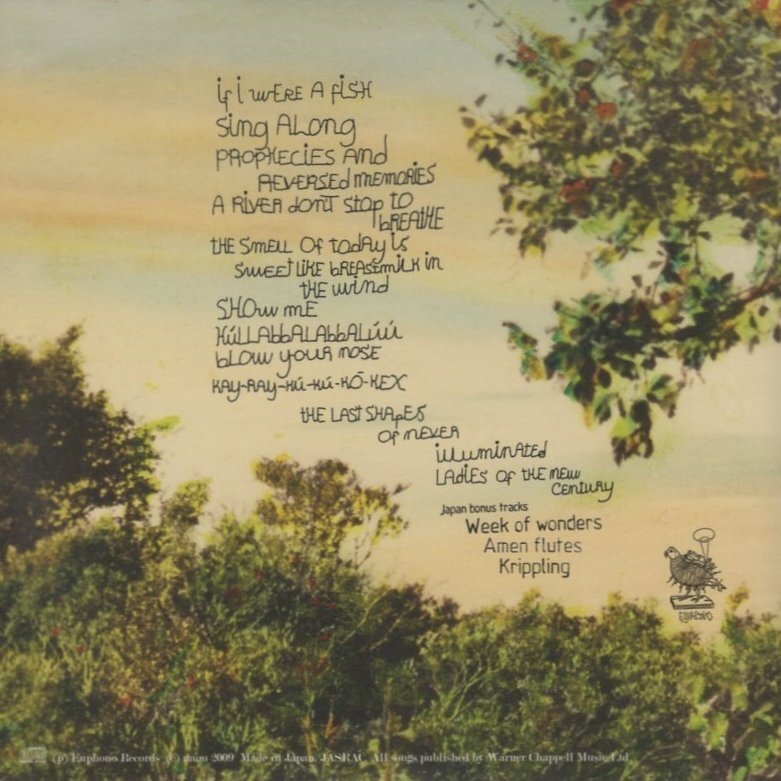 if i wERE A fiSH
Sing ALong
PROPHECIES And
REVERSEd mEmORIES
A RIVER donT Stop TO
bREATHE
tHE SmELL Of TodAy is
SwEET LiKE bREAStmiLK in
tHE wind
SHOw mE
HÚLLAbbALAbbALÚÚ
bLOw youR nOSE
KAy-RAy-KÚ-KÚ-KÓ-KEX
tHE LAST SHApES
Of nEVER
iLLuminATEd
LAdiES Of tHE nEw
CEntuRy
Japan bonus tracks
Week of wonders
Amen flutes
Krippling
(p) Euphono Records (c) múm 2009 Made in Japan. JASRAC. All songs published by Warner Chappell Music Ltd